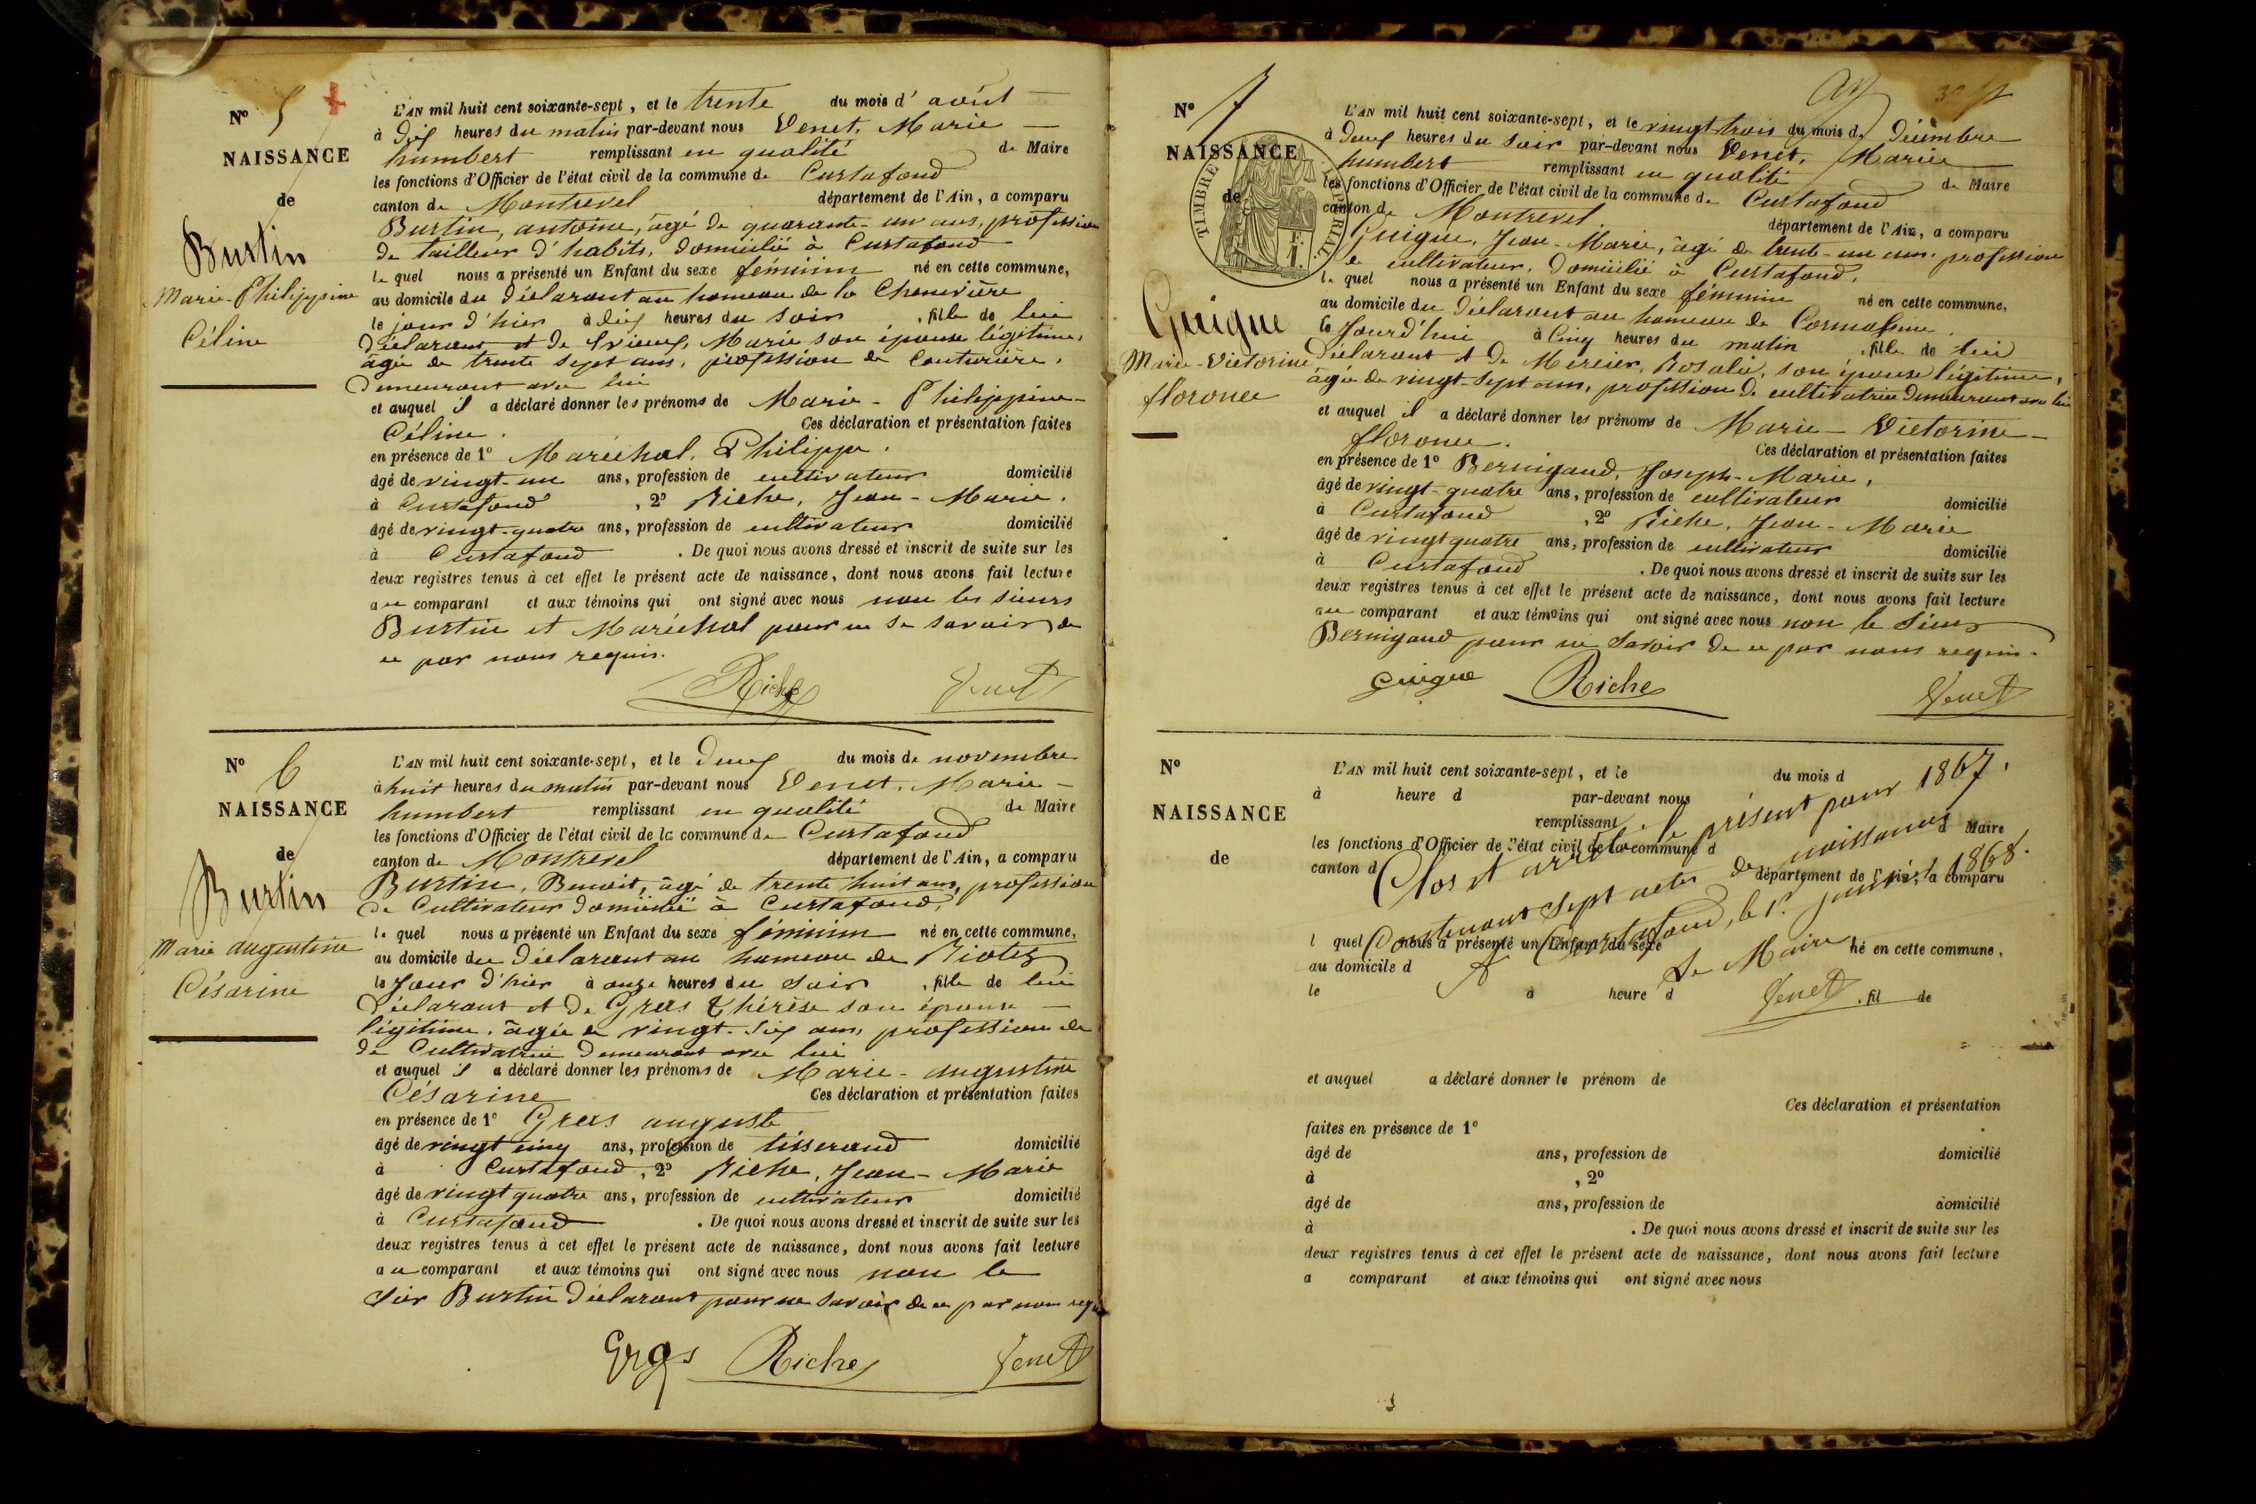 N° 5
NAISSANCE
de
Burtin
Marie-Philippine
Céline
L'AN mil huit cent soixante-sept, et le trente du mois d'août
à dix heures du matin par-devant nous Venet, Marie
humbert remplissant en qualité de Maire
les fonctions d'Officier de l'état civil de la commune de Curtafond
canton de Montrevel département de l'Ain, a comparu
Burtin, antoine, âgé de quarante-un ans, profession
de tailleur d'habits, domicilié à Curtafond
le quel nous a présenté un Enfant du sexe féminin né en cette commune,
au domicile du déclarant au hameau de la Chenevière
le jour d'hier à dix heures du soir, fille de lui
déclarant et de Marie son épouse légitime,
âgée de trente sept ans, profession de Couturière,
demeurant avec lui
et auquel il a déclaré donner les prénoms de Marie-Philippine-
Céline. Ces déclaration et présentation faites
en présence de 1° Maréchal, Philippe,
âgé de vingt-un ans, profession de cultivateur domicilié
à Curtafond, 2° Riche, Jean-Marie,
âgé de vingt-quatre ans, profession de cultivateur domicilié
à Curtafond. De quoi nous avons dressé et inscrit de suite sur les
deux registres tenus à cet effet le présent acte de naissance, dont nous avons fait lecture
au comparant et aux témoins qui ont signé avec nous non les sieurs
Burtin et Maréchal pour ne le savoir de
ce par nous requis.
Riche Venet
N° 6
NAISSANCE
de
Burtin
Marie augustine
Césarine
L'AN mil huit cent soixante-sept, et le deux du mois de novembre
à huit heures du matin par-devant nous Venet, Marie-
humbert remplissant en qualité de Maire
les fonctions d'Officier de l'état civil de la commune de Curtafond
canton de Montrevel département de l'Ain, a comparu
Burtin, Benoit, âgé de trente huit ans, profession
de Cultivateur domicilié à Curtafond,
le quel nous a présenté un Enfant du sexe féminin né en cette commune,
au domicile du déclarant au hameau de
le Jour d'hier à onze heures du soir, fille de lui
déclarant et de Gras Thérèse son épouse
légitime, âgée de vingt-six ans, profession de
de Cultivatrice demeurant avec lui
et auquel il a déclaré donner les prénoms de Marie-augustine
Césarine Ces déclaration et présentation faites
en présence de 1° Gras auguste
âgé de vingt cinq ans, profession de tisserand domicilié
à Curtafond, 2° Riche, Jean-Marie
âgé de vingt quatre ans, profession de cultivateur domicilié
à Curtafond. De quoi nous avons dressé et inscrit de suite sur les
deux registres tenus à cet effet le présent acte de naissance, dont nous avons fait lecture
au comparant et aux témoins qui ont signé avec nous non le
sieur Burtin déclarant pour ne savoir de ce par nous requis
Gras Riche Venet
N° 7
NAISSANCE
de
TIMBRE IMPÉRIAL
Guigue
Marie-Victorine
florence
L'AN mil huit cent soixante-sept, et le vingt trois du mois de décembre
à deux heures du soir par-devant nous Venet, Marie
humbert remplissant en qualité de Maire
les fonctions d'Officier de l'état civil de la commune de Curtafond
canton de Montrevel département de l'Ain, a comparu
Guigue, Jean-Marie, âgé de trente-un ans, profession
de cultivateur, domicilié à Curtafond,
le quel nous a présenté un Enfant du sexe féminin né en cette commune,
au domicile du déclarant au hameau de
le Jourd'hui à Cinq heures du matin, fille de lui
déclarant et de Mercier, Rosalie, son épouse légitime,
âgée de vingt-sept ans, profession de cultivatrice demeurant avec lui
et auquel il a déclaré donner les prénoms de Marie-Victorine-
florence. Ces déclaration et présentation faites
en présence de 1° Bernigaud, Joseph-Marie,
âgé de vingt-quatre ans, profession de cultivateur domicilié
à Curtafond, 2° Riche, Jean-Marie
âgé de vingt quatre ans, profession de cultivateur domicilié
à Curtafond. De quoi nous avons dressé et inscrit de suite sur les
deux registres tenus à cet effet le présent acte de naissance, dont nous avons fait lecture
au comparant et aux témoins qui ont signé avec nous non le sieur
Bernigaud pour ne savoir de ce par nous requis.
Guigue Riche Venet
N°
NAISSANCE
de
L'AN mil huit cent soixante-sept, et le du mois d
à heure d par-devant nous
remplissant
d Maire
les fonctions d'Officier de l'état civil de la commune d
canton d département de l'Ain, a comparu
Clos et arrêté le présent pour 1867.
Contenant sept actes de naissances
A Curtafond, le 1er janvier 1868.
Le Maire,
Venet
l quel nous a présenté un Enfant du sexe né en cette commune,
au domicile d
le à heure d , fil de
et auquel a déclaré donner le prénom de
Ces déclaration et présentation
faites en présence de 1°
âgé de ans, profession de domicilié
à , 2°
âgé de ans, profession de domicilié
à . De quoi nous avons dressé et inscrit de suite sur les
deux registres tenus à cet effet le présent acte de naissance, dont nous avons fait lecture
a comparant et aux témoins qui ont signé avec nous